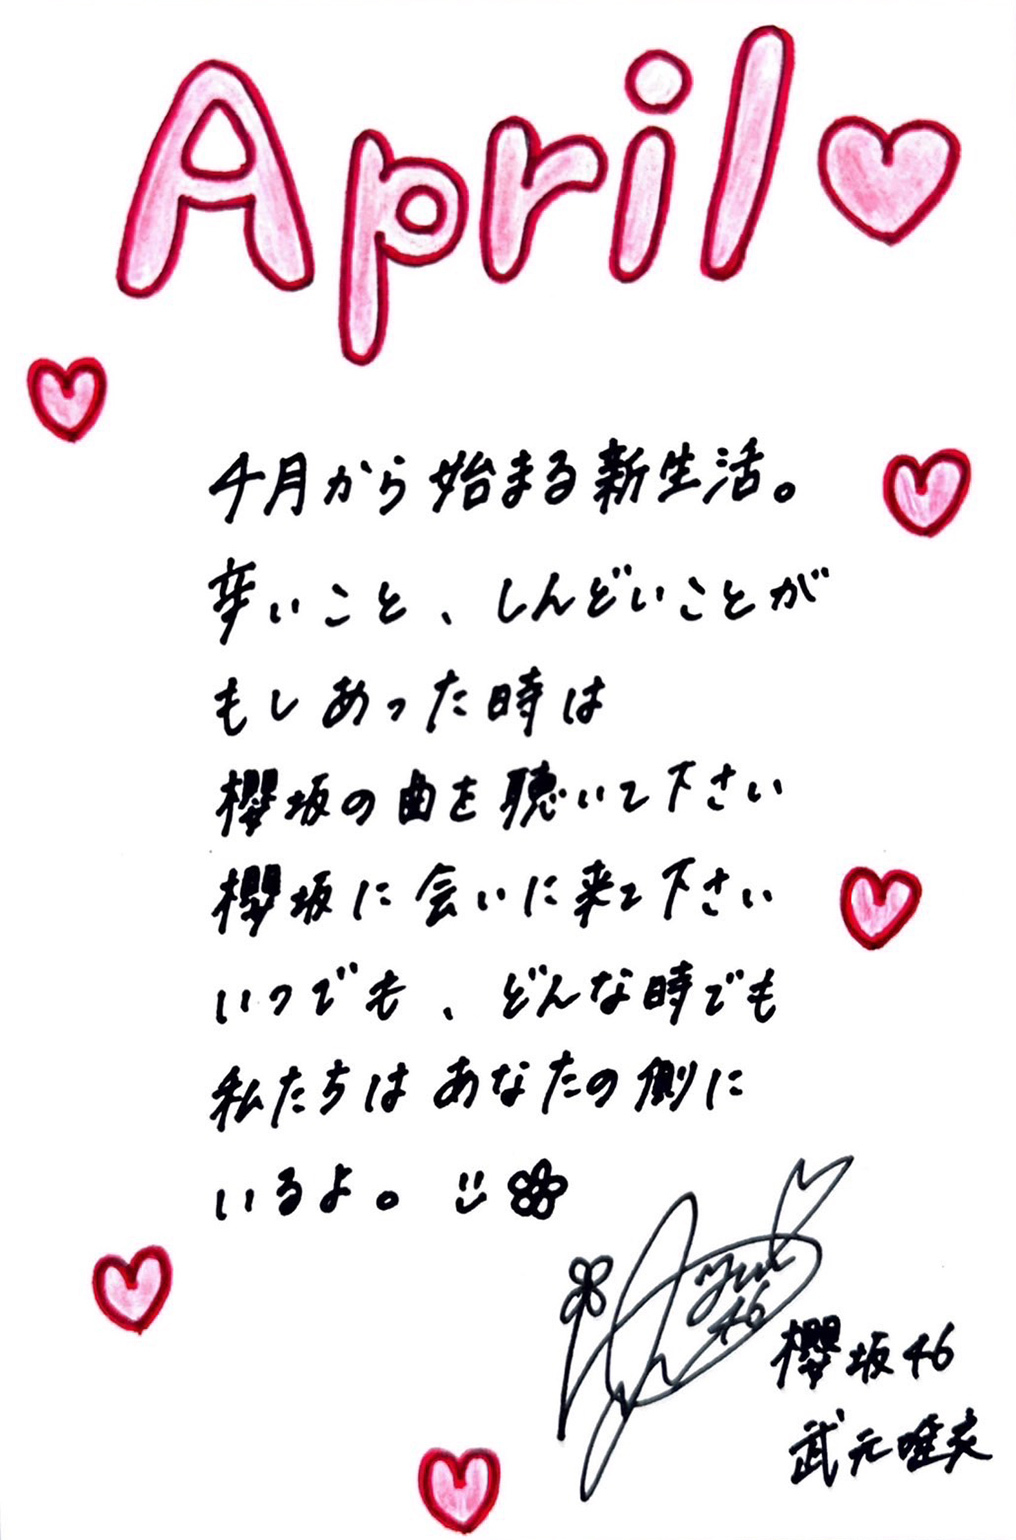 April
4月から始まる新生活。
辛いこと、しんどいことが
もしあった時は
櫻坂の曲を聴いて下さい
櫻坂に会いに来て下さい
いつでも、どんな時でも
私たちはあなたの側に
いるよ。
46
櫻坂46
武元唯衣